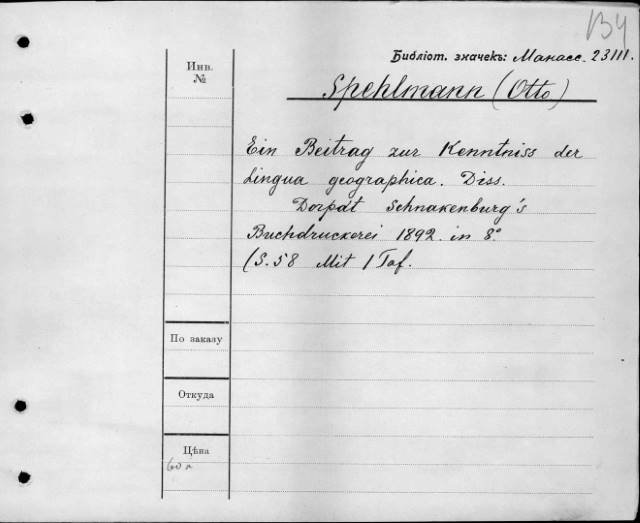 В4
Библіот. значекъ: Манасс. 23111.
Инв.
№
Spehlmann (Otto)
Ein Beitrag zur Kenntniss der
Lingua geographica. Diss.
Dorpat Schnakenburg's
Buchdruckerei 1892. in 8°.
(S. 58 Mit 1 Taf.
По заказу
Откуда
Цѣна